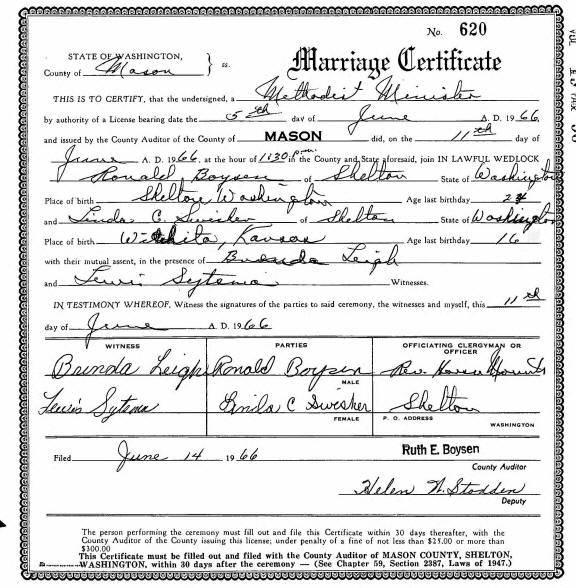 No. 620
STATE OF WASHINGTON,
County of Mason } ss.
Marriage Certificate
THIS IS TO CERTIFY, that the undersigned, a Methodist Minister
by authority of a License bearing date the 5th day of June A. D. 1966
and issued by the County Auditor of the County of MASON did, on the 11th day of
June A. D. 1966, at the hour of 1:30 p.m. in the County and State aforesaid, join IN LAWFUL WEDLOCK
Ronald Boysen of Shelton State of Washington
Place of birth Shelton, Washington Age last birthday 24
and Linda C. Swisher of Shelton State of Washington
Place of birth Wichita, Kansas Age last birthday 16
with their mutual assent, in the presence of Brenda Leigh
and Lewis Sytema Witnesses.
IN TESTIMONY WHEREOF, Witness the signatures of the parties to said ceremony, the witnesses and myself, this 11th
day of June A. D. 1966
WITNESS PARTIES OFFICIATING CLERGYMAN OR OFFICER
Brinda Leigh Ronald Boysen Rev. Mounts
MALE
Lewis Sytema Linda C Swisher Shelton
FEMALE P. O. ADDRESS WASHINGTON
Filed June 14 1966 Ruth E. Boysen
County Auditor
Helen N. Stodden
Deputy
The person performing the ceremony must fill out and file this Certificate within 30 days thereafter, with the
County Auditor of the County issuing this license; under penalty of a fine of not less than $25.00 or more than
$300.00
This Certificate must be filled out and filed with the County Auditor of MASON COUNTY, SHELTON,
WASHINGTON, within 30 days after the ceremony — (See Chapter 59, Section 2387, Laws of 1947.)